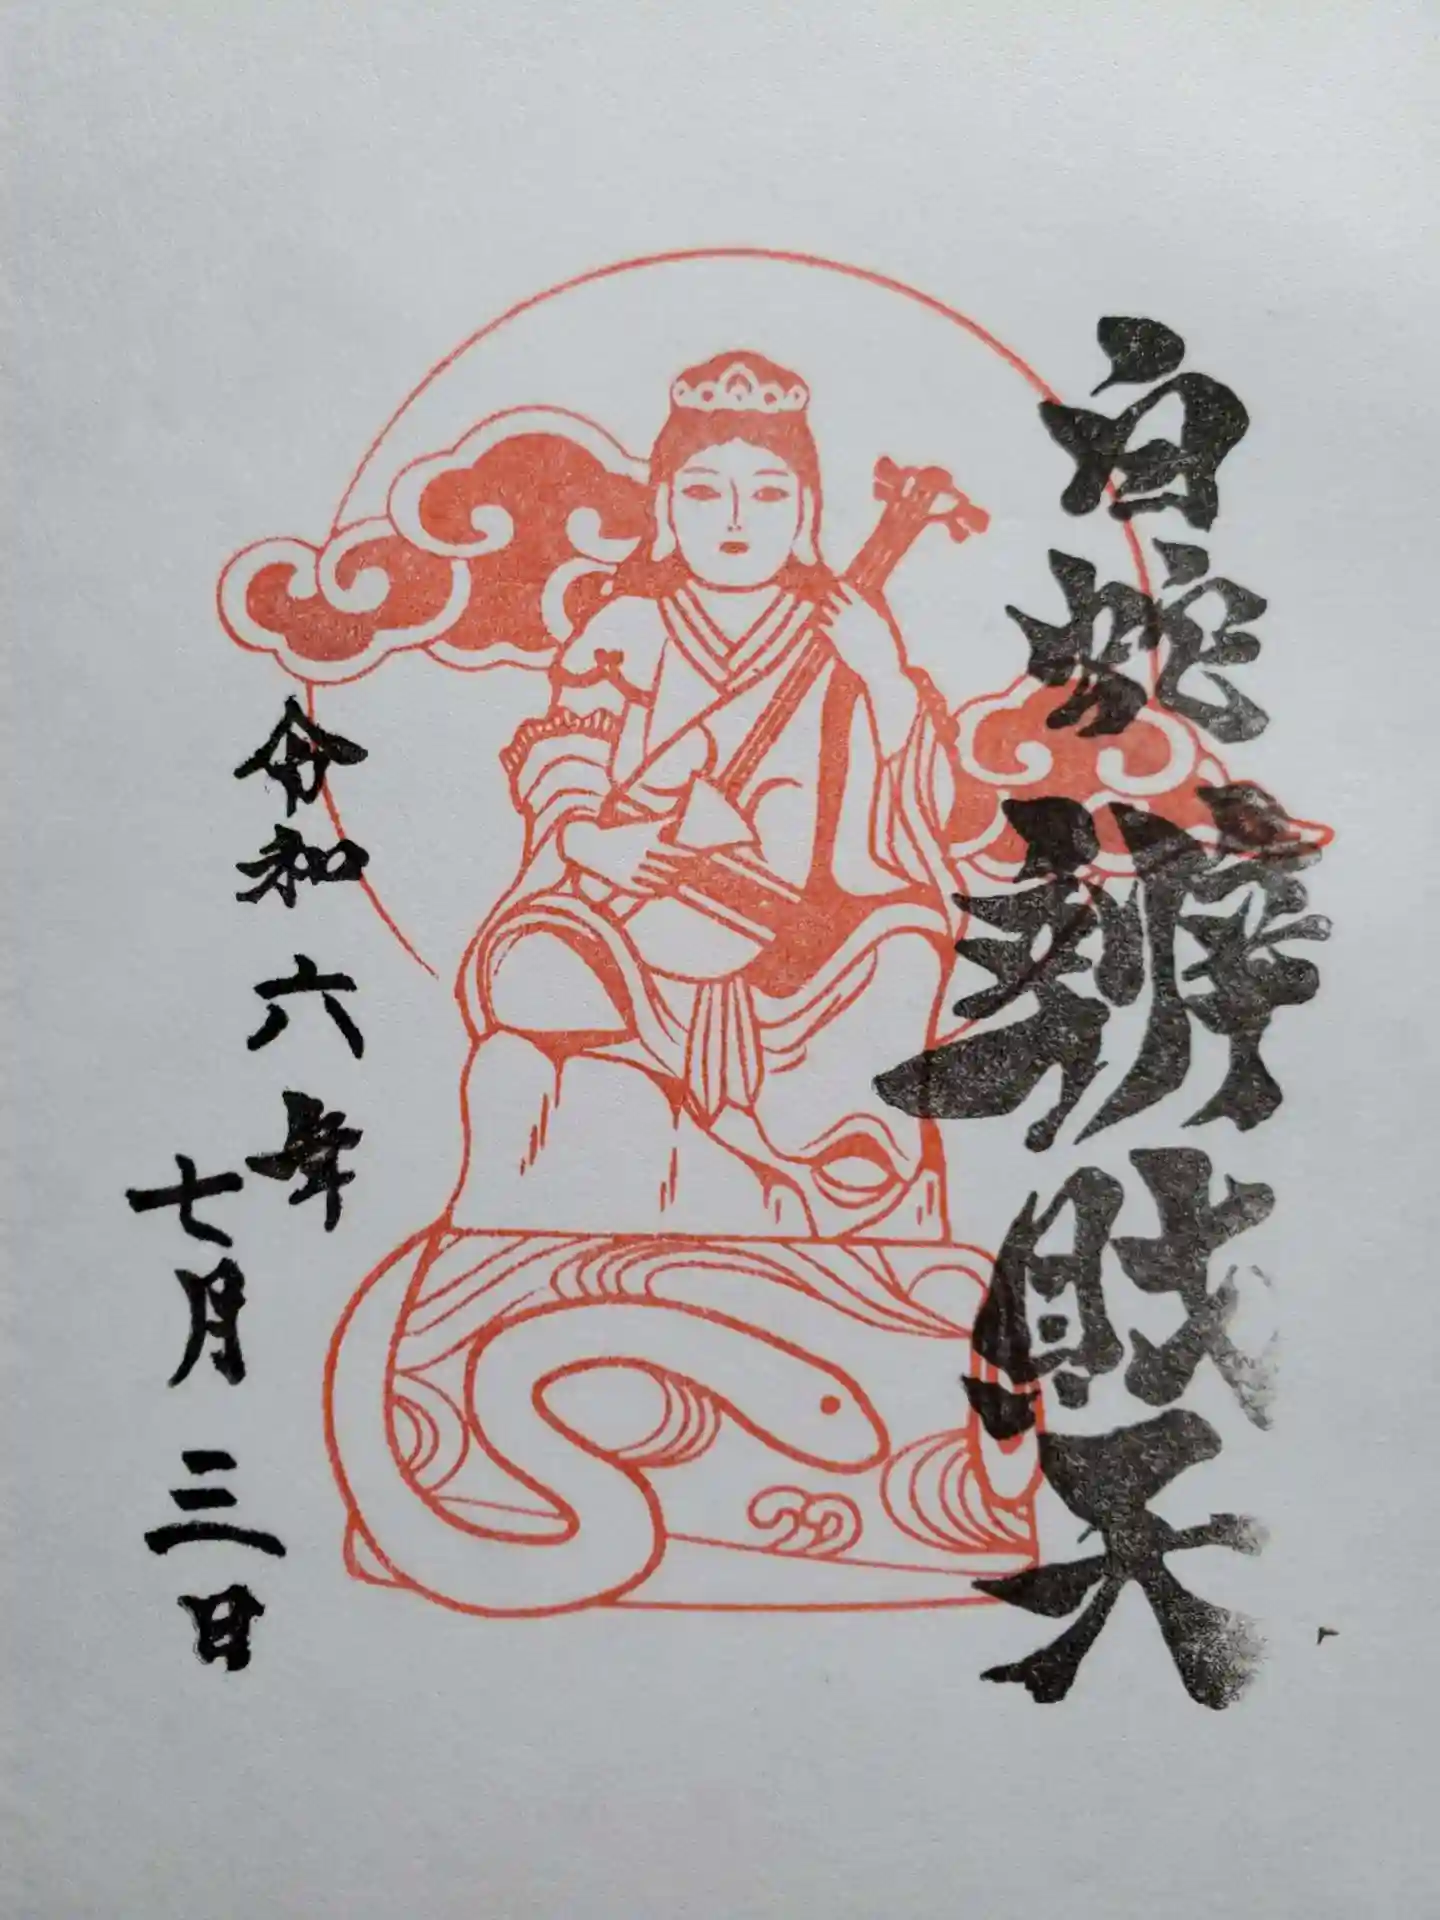 白蛇辨財天
令和六年
七月三日